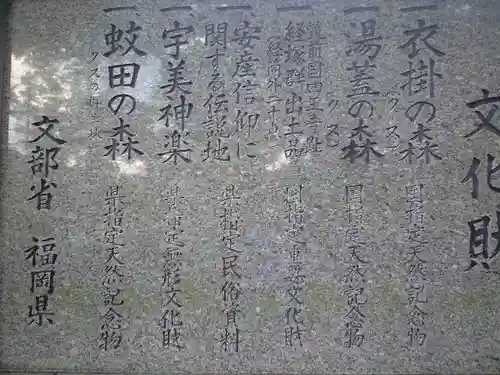 文化財
一衣掛の森(クス) 国指定天然記念物
一湯蓋の森(クス) 国指定天然記念物
筑前国四王寺跡
経塚群出土品 国指定重要文化財
一安産信仰に
関する伝説地 県指定民俗資料
一宇美神楽 県指定無形文化財
一蚊田の森 県指定天然記念物
文部省 福岡県